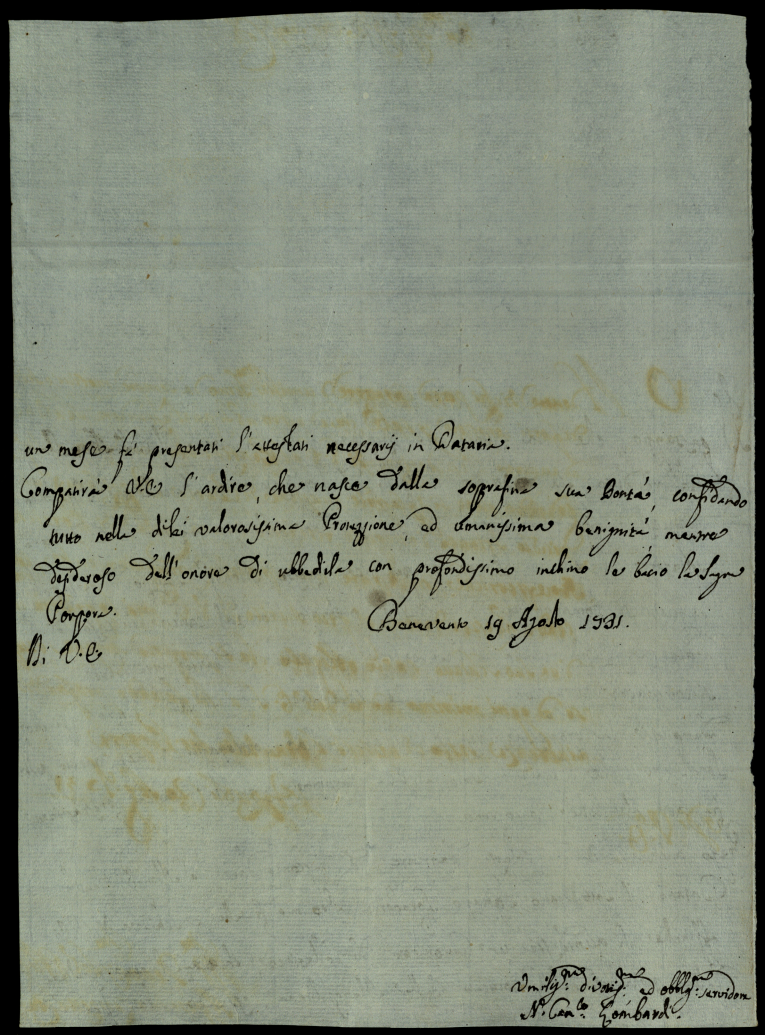 un mese fà presentati l'attestati necessarij in Dataria.
Compatirà V.E. l'ardire, che nasce dalla soprafina sua Bontà, confidando
tutto nella dilei valorosissima Protezzione, ed umanissima benignità, mentre
desideroso dell'onore di ubbedirla con profondissimo inchino le bacio la Sagra
Porpora.
Benevento 19 Agosto 1731.
Di V.E.
Umiliss.mo divotiss.mo ed obblig.mo servidore
Lombardi.